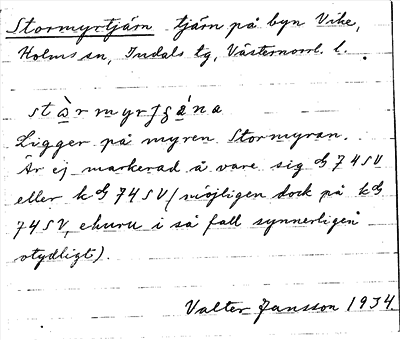 Stormyrtjärn tjärn på byn Vike,
Holms sn, Indals tg, Västernorrl. l.
stàrmyrʃgána
Ligger på myren Stormyran.
Är ej markerad å vare sig G 74SV
eller kG 74SV (möjligen dock på kG
74SV, ehuru i så fall synnerligen
otydligt).
Valter Jansson 1934.